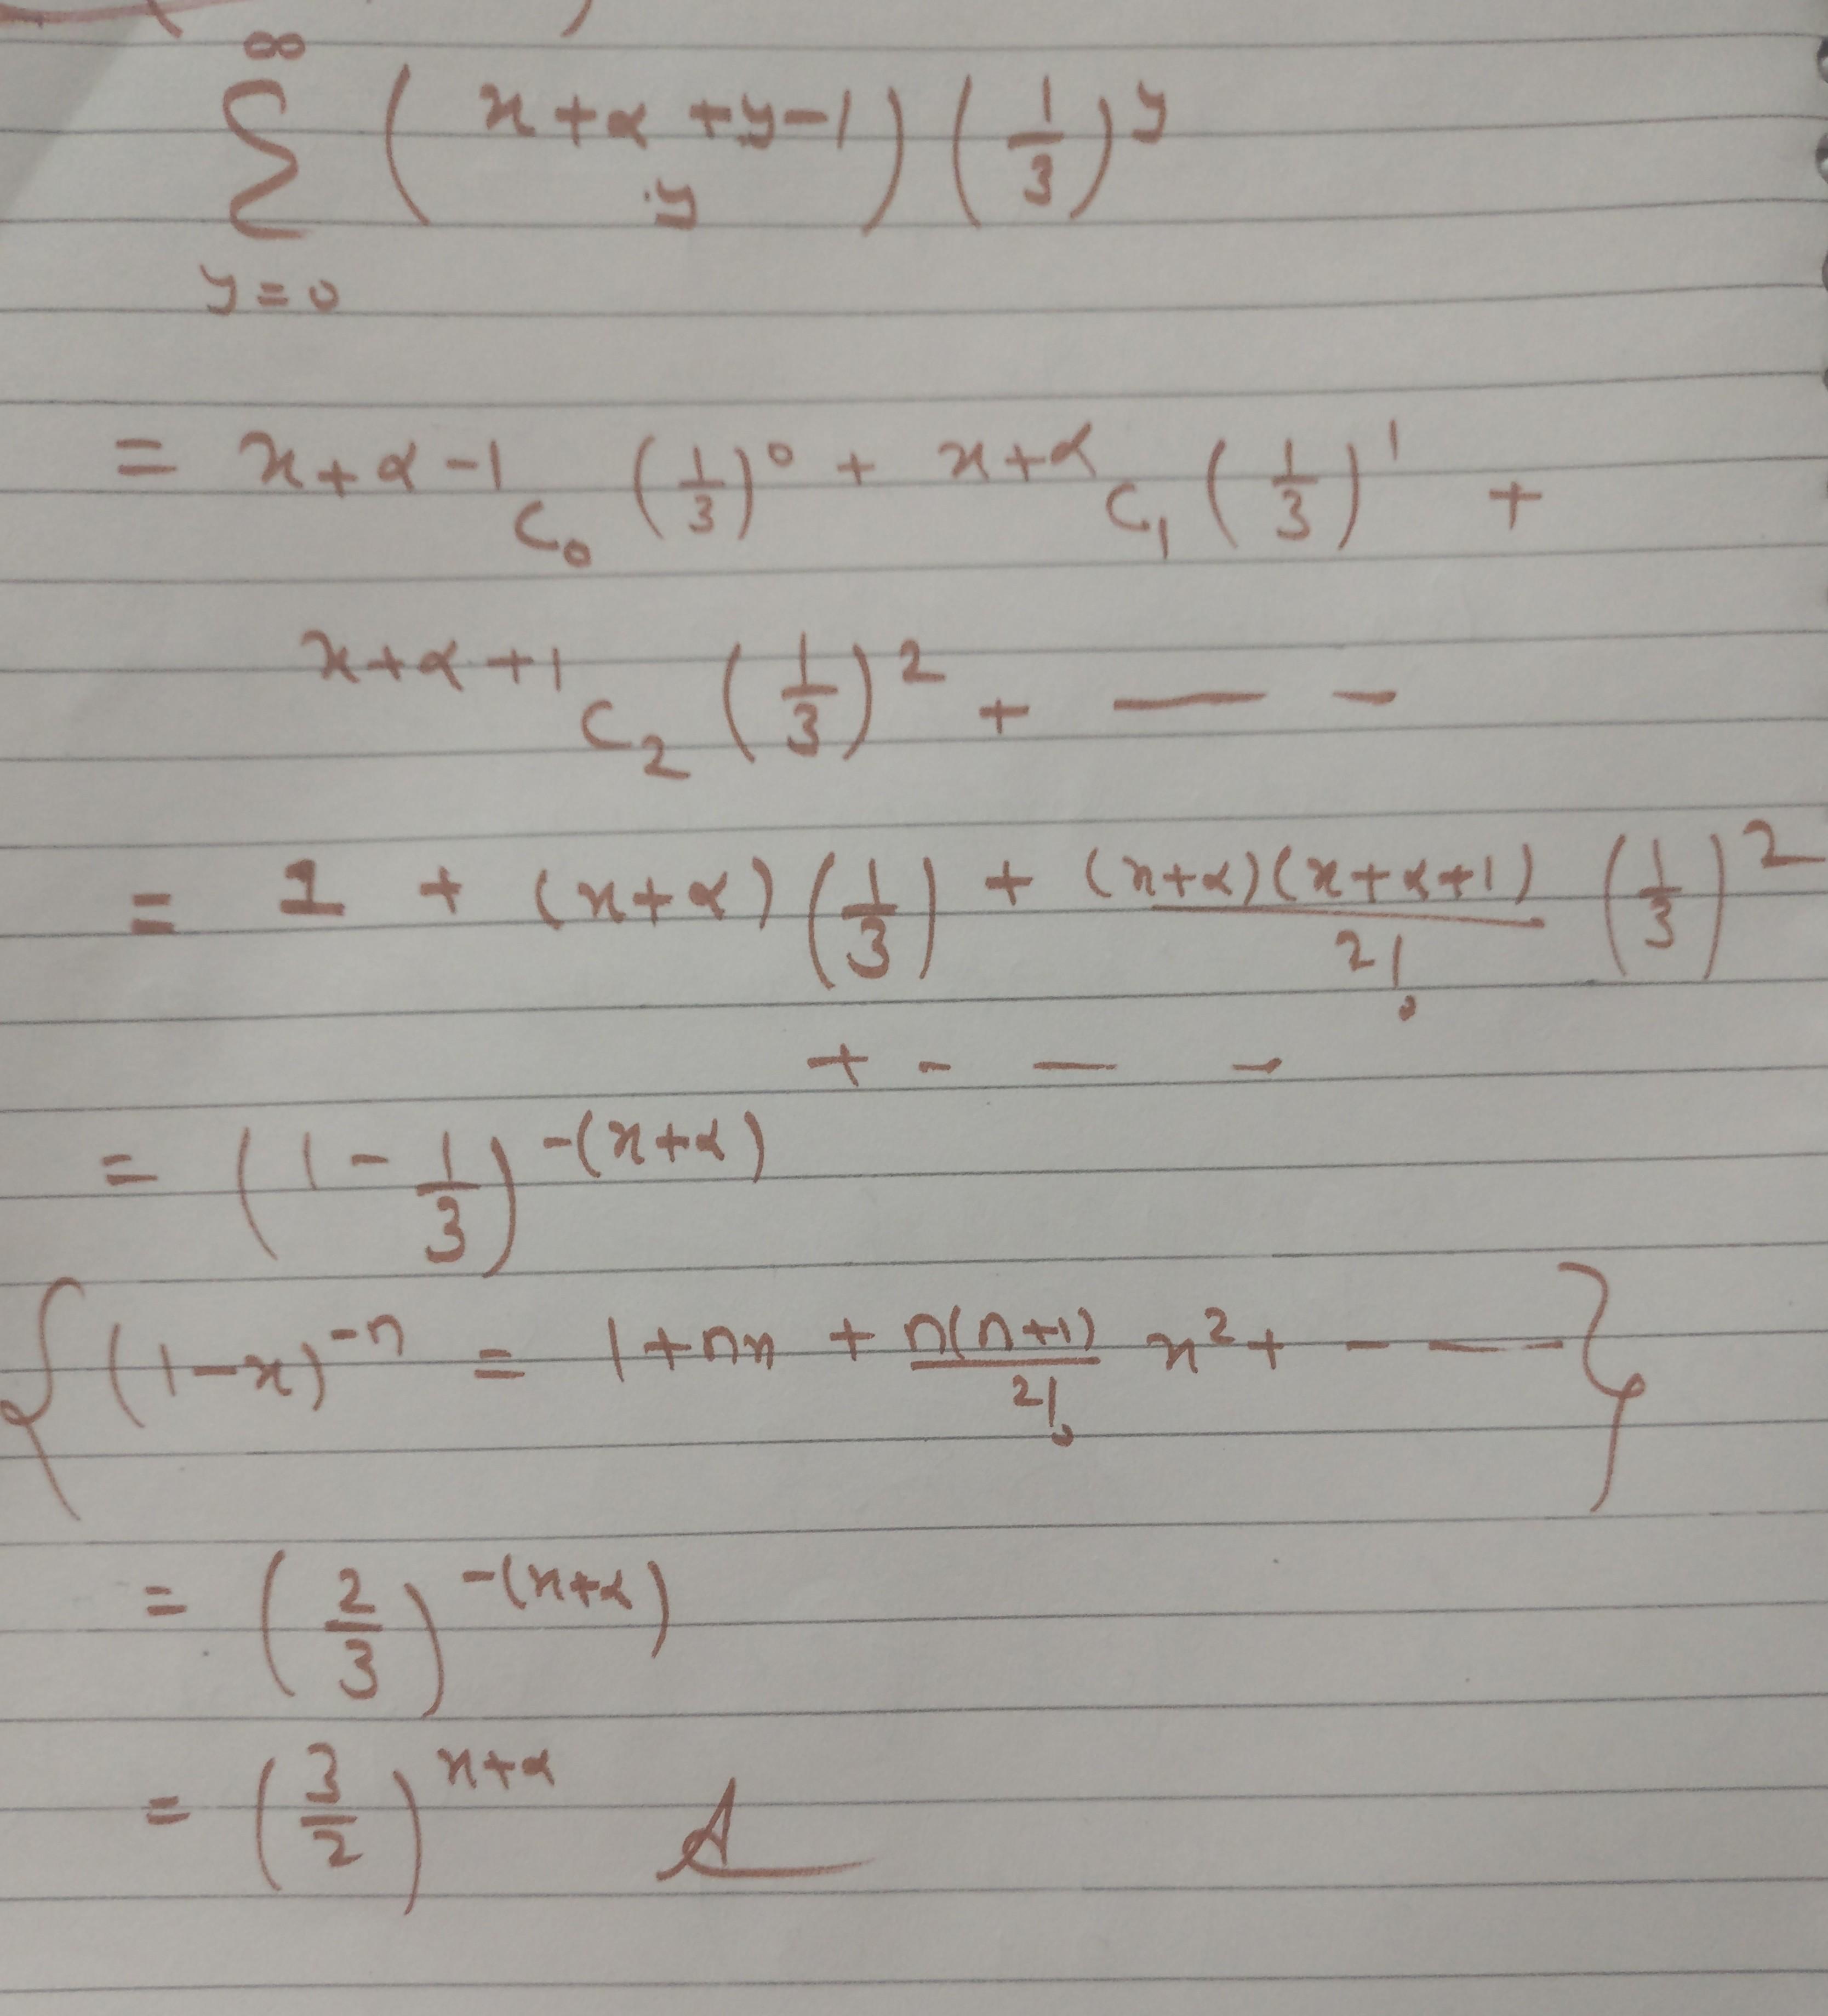 ∞
Σ ( x+α+y-1 y ) (1/3)^y
y=0
= ^{x+α-1}C_0 (1/3)^0 + ^{x+α}C_1 (1/3)^1 +
^{x+α+1}C_2 (1/3)^2 + — -
= 1 + (x+α) (1/3) + (x+α)(x+α+1)/2! (1/3)^2
+ - — -
= (1 - 1/3)^{-(x+α)}
{ (1-x)^{-n} = 1+nx + n(n+1)/2! x^2 + - — — }
= (2/3)^{-(x+α)}
= (3/2)^{x+α}